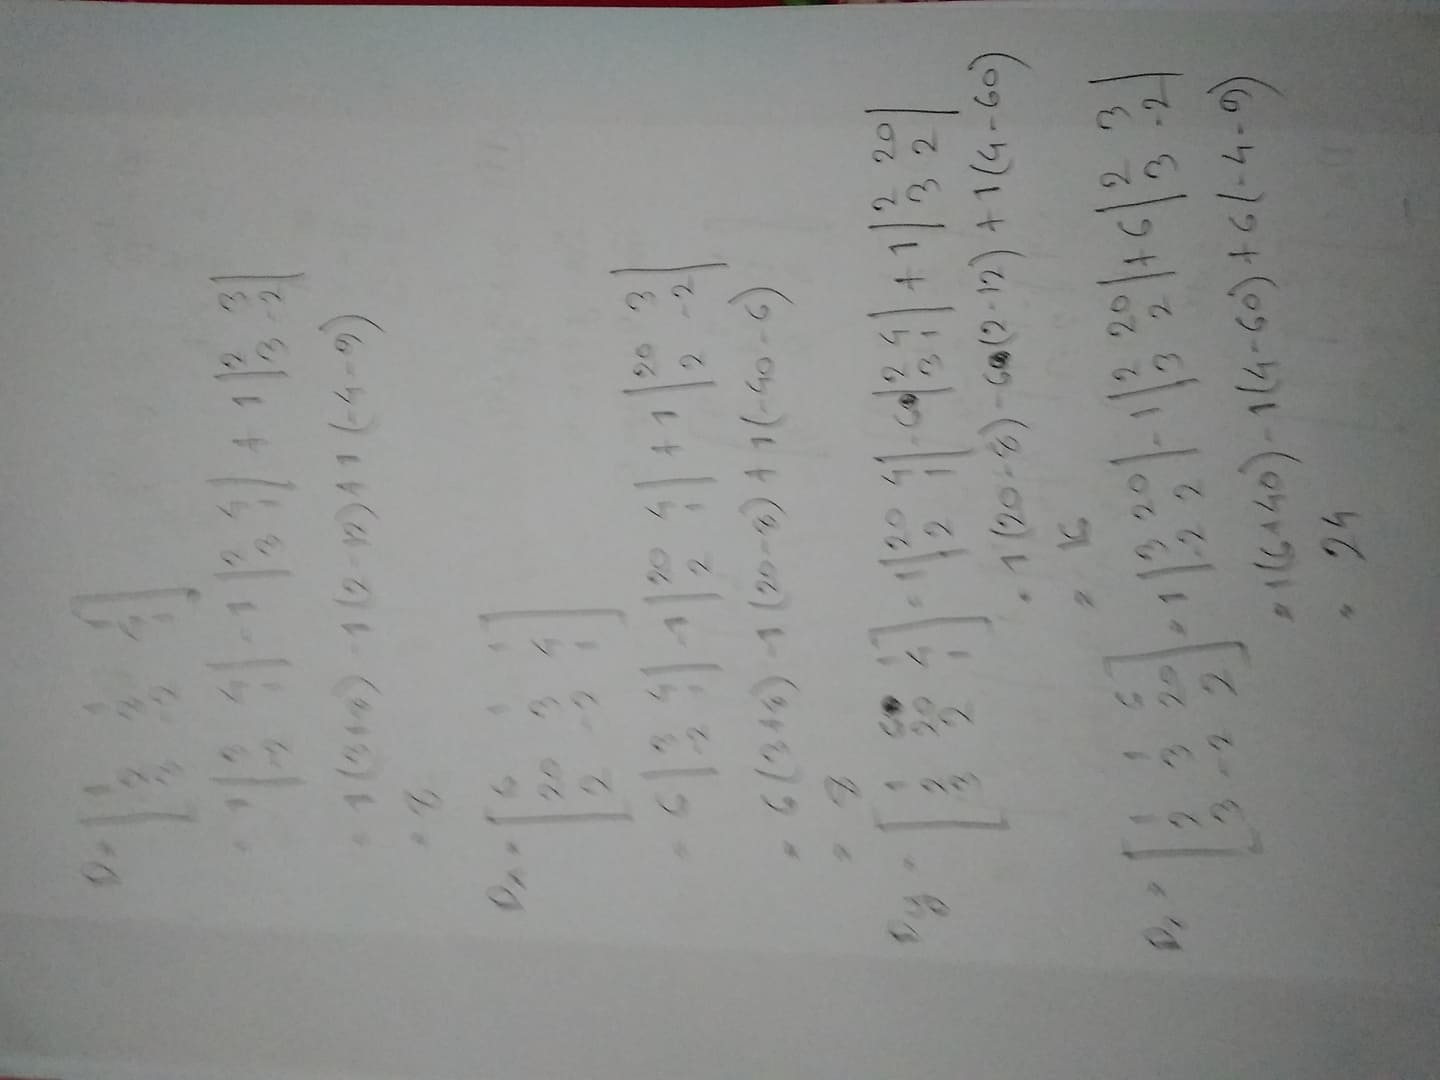 D = [1 1 1
2 3 4
3 -2 1]
= 1 |3 4 -2 1| - 1 |2 4 3 1| + 1 |2 3 3 -2|
= 1(3+8) - 1(2-12) + 1(-4-9)
= 8
Dx = [6 1 1
20 3 4
2 -2 1]
= 6 |3 4 -2 1| - 1 |20 4 2 1| + 1 |20 3 2 -2|
= 6(3+8) - 1(20-8) + 1(-40-6)
= 8
Dy = [1 6 1
2 20 4
3 2 1] = 1 |20 4 2 1| - 6 |2 4 3 1| + 1 |2 20 3 2|
= 1(20-8) - 6(2-12) + 1(4-60)
= 16
D = [1 1 6
2 3 20
3 -2 2] = 1 |3 20 -2 2| - 1 |2 20 3 2| + 6 |2 3 3 -2|
= 1(6+40) - 1(4-60) + 6(-4-9)
= 24